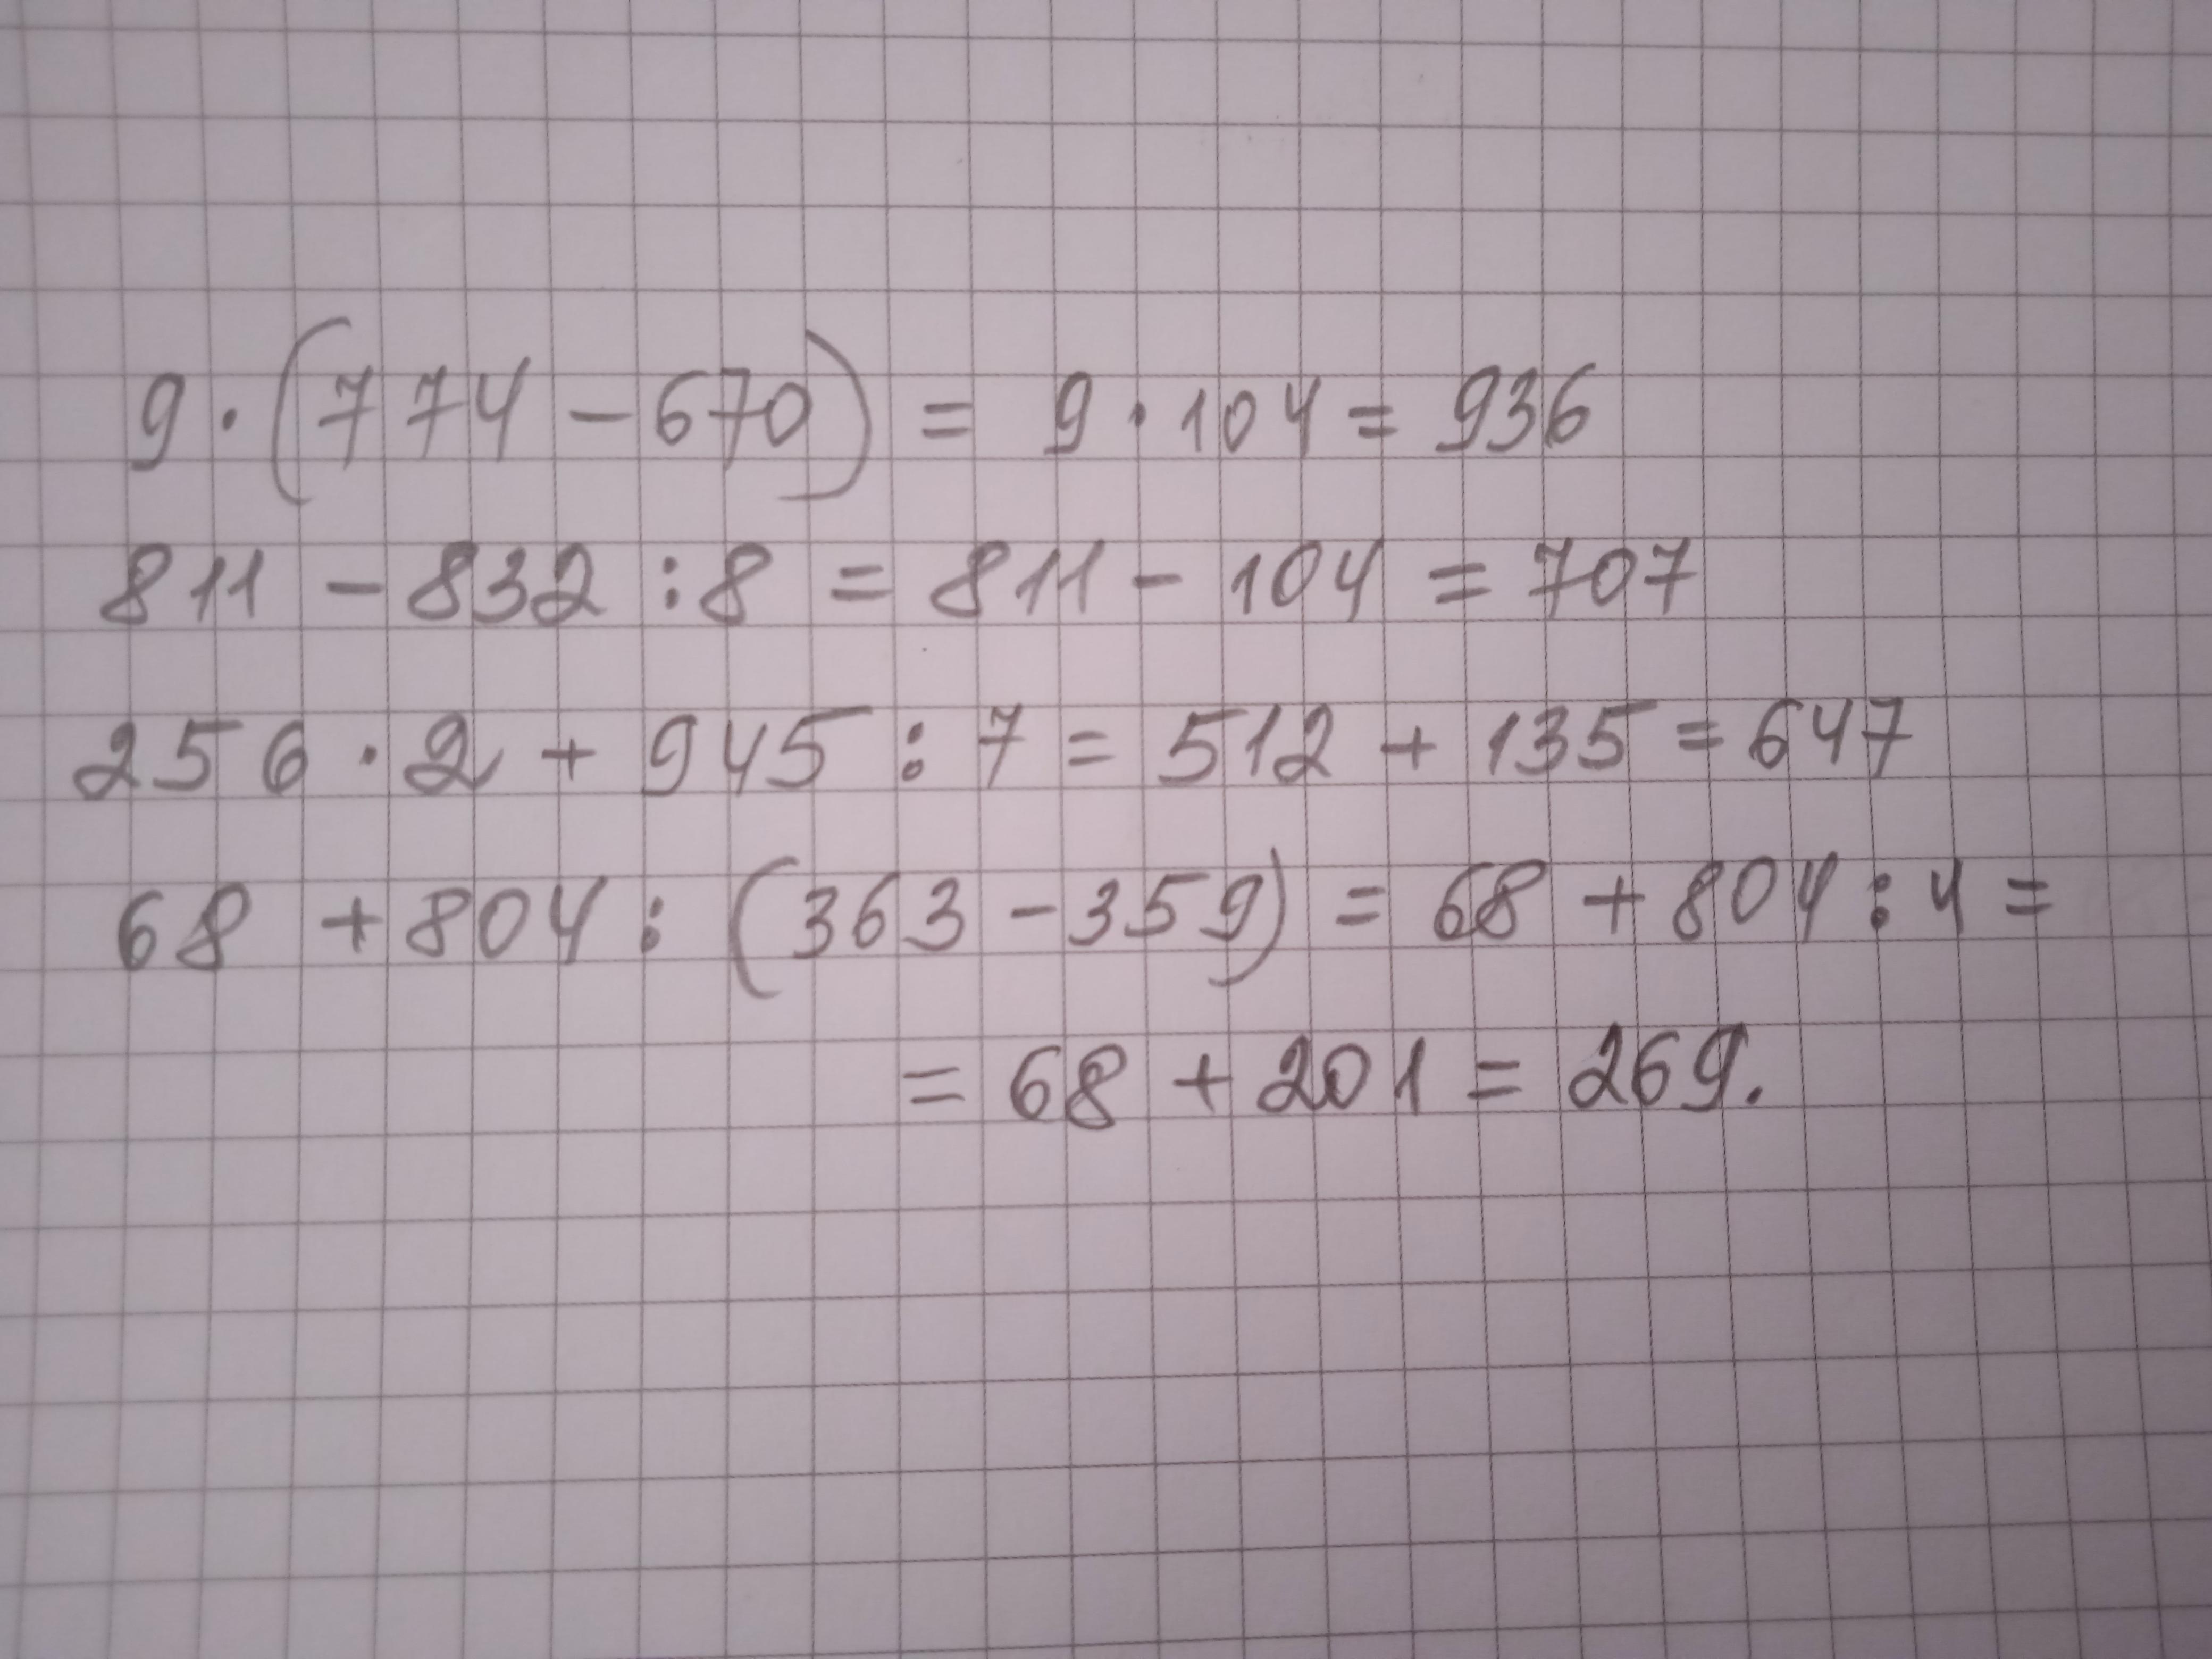 9 · (774 - 670) = 9 · 104 = 936
811 - 832 : 8 = 811 - 104 = 707
256 · 2 + 945 : 7 = 512 + 135 = 647
68 + 804 : (363 - 359) = 68 + 804 : 4 =
= 68 + 201 = 269.